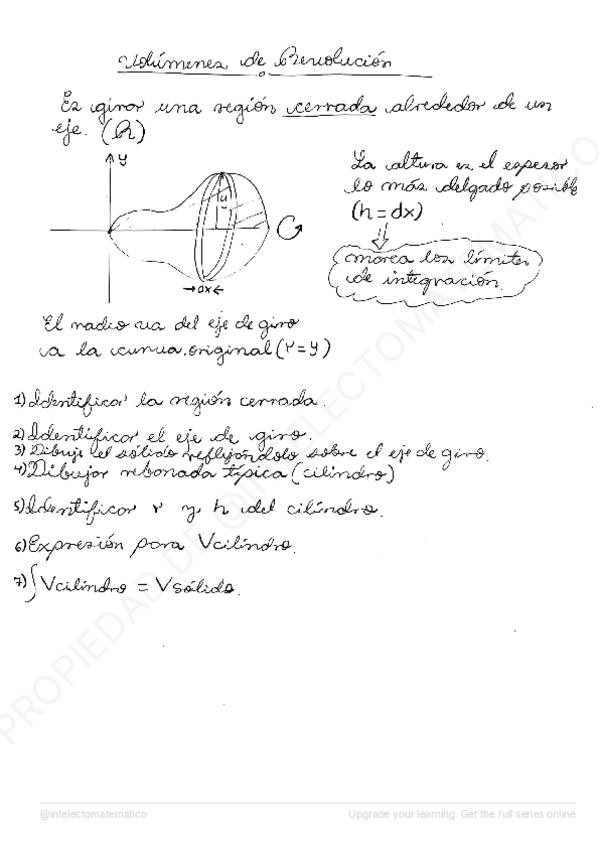 Volúmenes de Revolución
Es girar una región cerrada alrededor de un
eje. (h)
y
y
→dx←
La altura es el espesor
lo más delgado posible
(h = dx)
marca los límites
de integración.
El radio va del eje de giro
a la curva original (r = y)
1) Identificar la región cerrada.
2) Identificar el eje de giro.
3) Dibuje el sólido reflejándolo sobre el eje de giro.
4) Dibujar rebanada típica (cilindro)
5) Identificar r y h del cilindro.
6) Expresión para Vcilindro.
7) ∫Vcilindro = Vsólido.
PROPIEDAD DE @INTELECTOMATEMATICO
@intelectomatematico
Upgrade your learning: Get the full series online